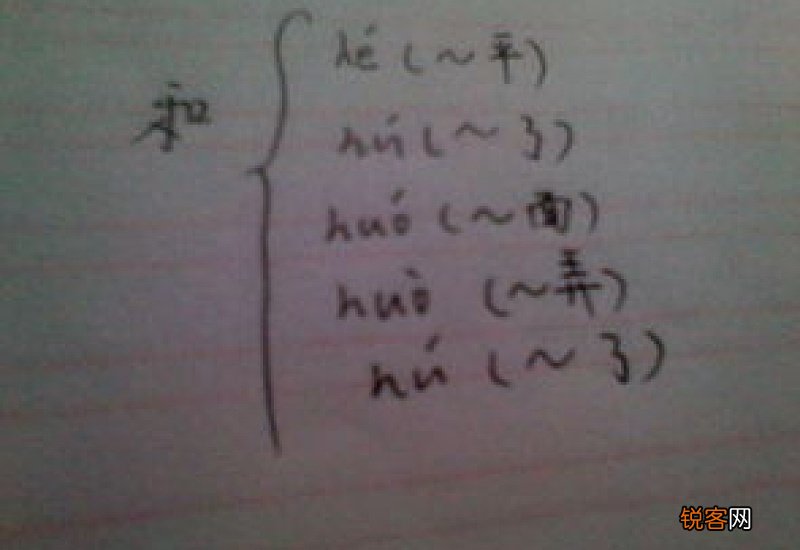 和
hé (~平)
hú (~了)
huó (~面)
huò (~弄)
hú (~了)
锐客网